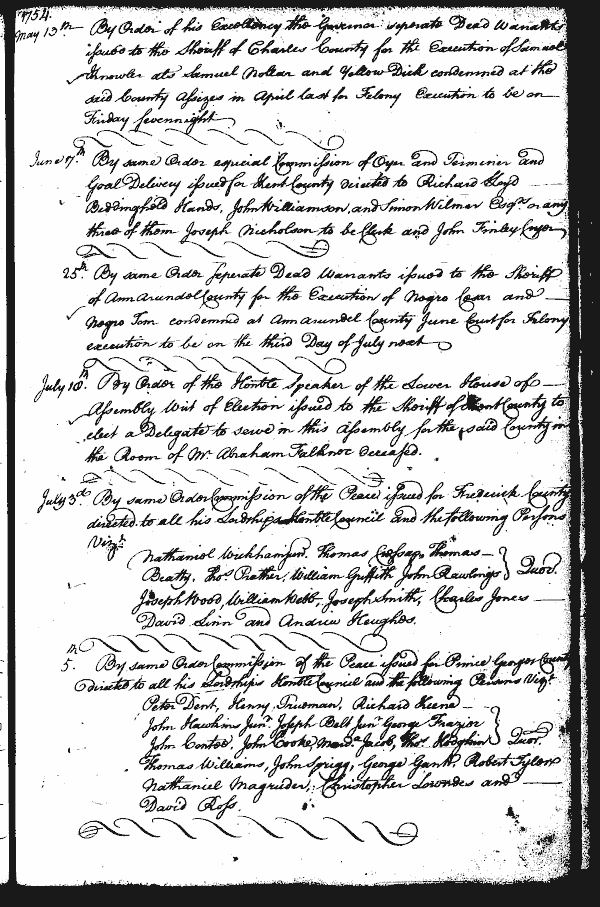 1754.
May 13th By Order of his Excellency the Governor seperate Dead Warrants
issued to the Sheriff of Charles County for the Execution of Samuel
Knowler als Samuel Noller and Yellow Dick condemned at the
said County Assizes in April last for Felony Execution to be on
Friday sevennight
June 7th By same Order especial Commission of Oyer and Terminer and
Goal Delivery issued for Kent County directed to Richard Lloyd
Beddingfield Hands, John Williamson, and Simon Wilmer Esqrs. or any
three of them Joseph Nicholson to be Clerk and John Finley Cryer
25th By same Order Seperate Dead Warrants issued to the Sheriff
of Ann Arundel County for the Execution of Negro Cesar and
Negro Tom condemned at Annarundel County June Court for Felony
execution to be on the third Day of July next
July 18th. By Order of the Honble Speaker of the Lower House of
Assembly Writ of Election issued to the Sheriff of County to
elect a Delegate to serve in this Assembly for the said County in
the Room of Mr. Abraham Falknor deceased.
July 3d By same Order Commission of the Peace issued for Frederick County
directed to all his Lordships Honble Council and the following Persons
Vizt.
Nathaniel Wickham junr. Thomas Cressap, Thomas
Beatty, Thos. Prather, William Griffith John Rawlings } Quor.
Joseph Wood, William Webb, Joseph Smith, Charles Jones
David Linn and Andrew Heughes.
5th. By same Order Commission of the Peace issued for Prince Georges County
directed to all his Lordships Honble Council and the following Persons Vizt.
Peter Dent, Henry Trueman, Richard Keene
John Hawkins Junr. Joseph Belt Junr George Frazier
John Contee, John Cooke, Jacob, Thos. Hodgkin } Quor.
Thomas Williams, John Sprigg, George Gantt, Robert Tyler
Nathaniel Magruder, Christopher Lowndes and
David Ross.